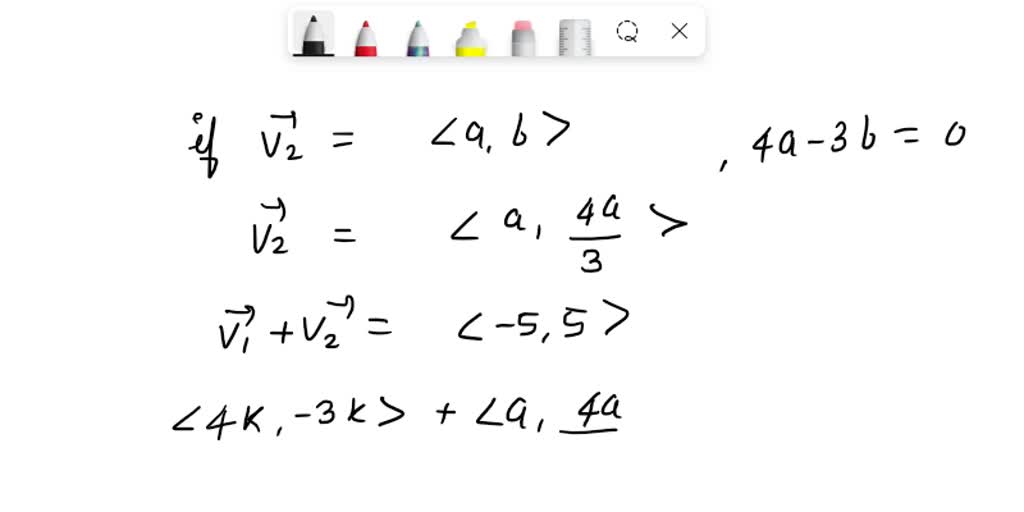 if v₂⃗ = <a, b> , 4a - 3b = 0
v₂⃗ = < a, 4a/3 >
v₁⃗ + v₂⃗ = <-5, 5>
<4k, -3k> + <a, 4a